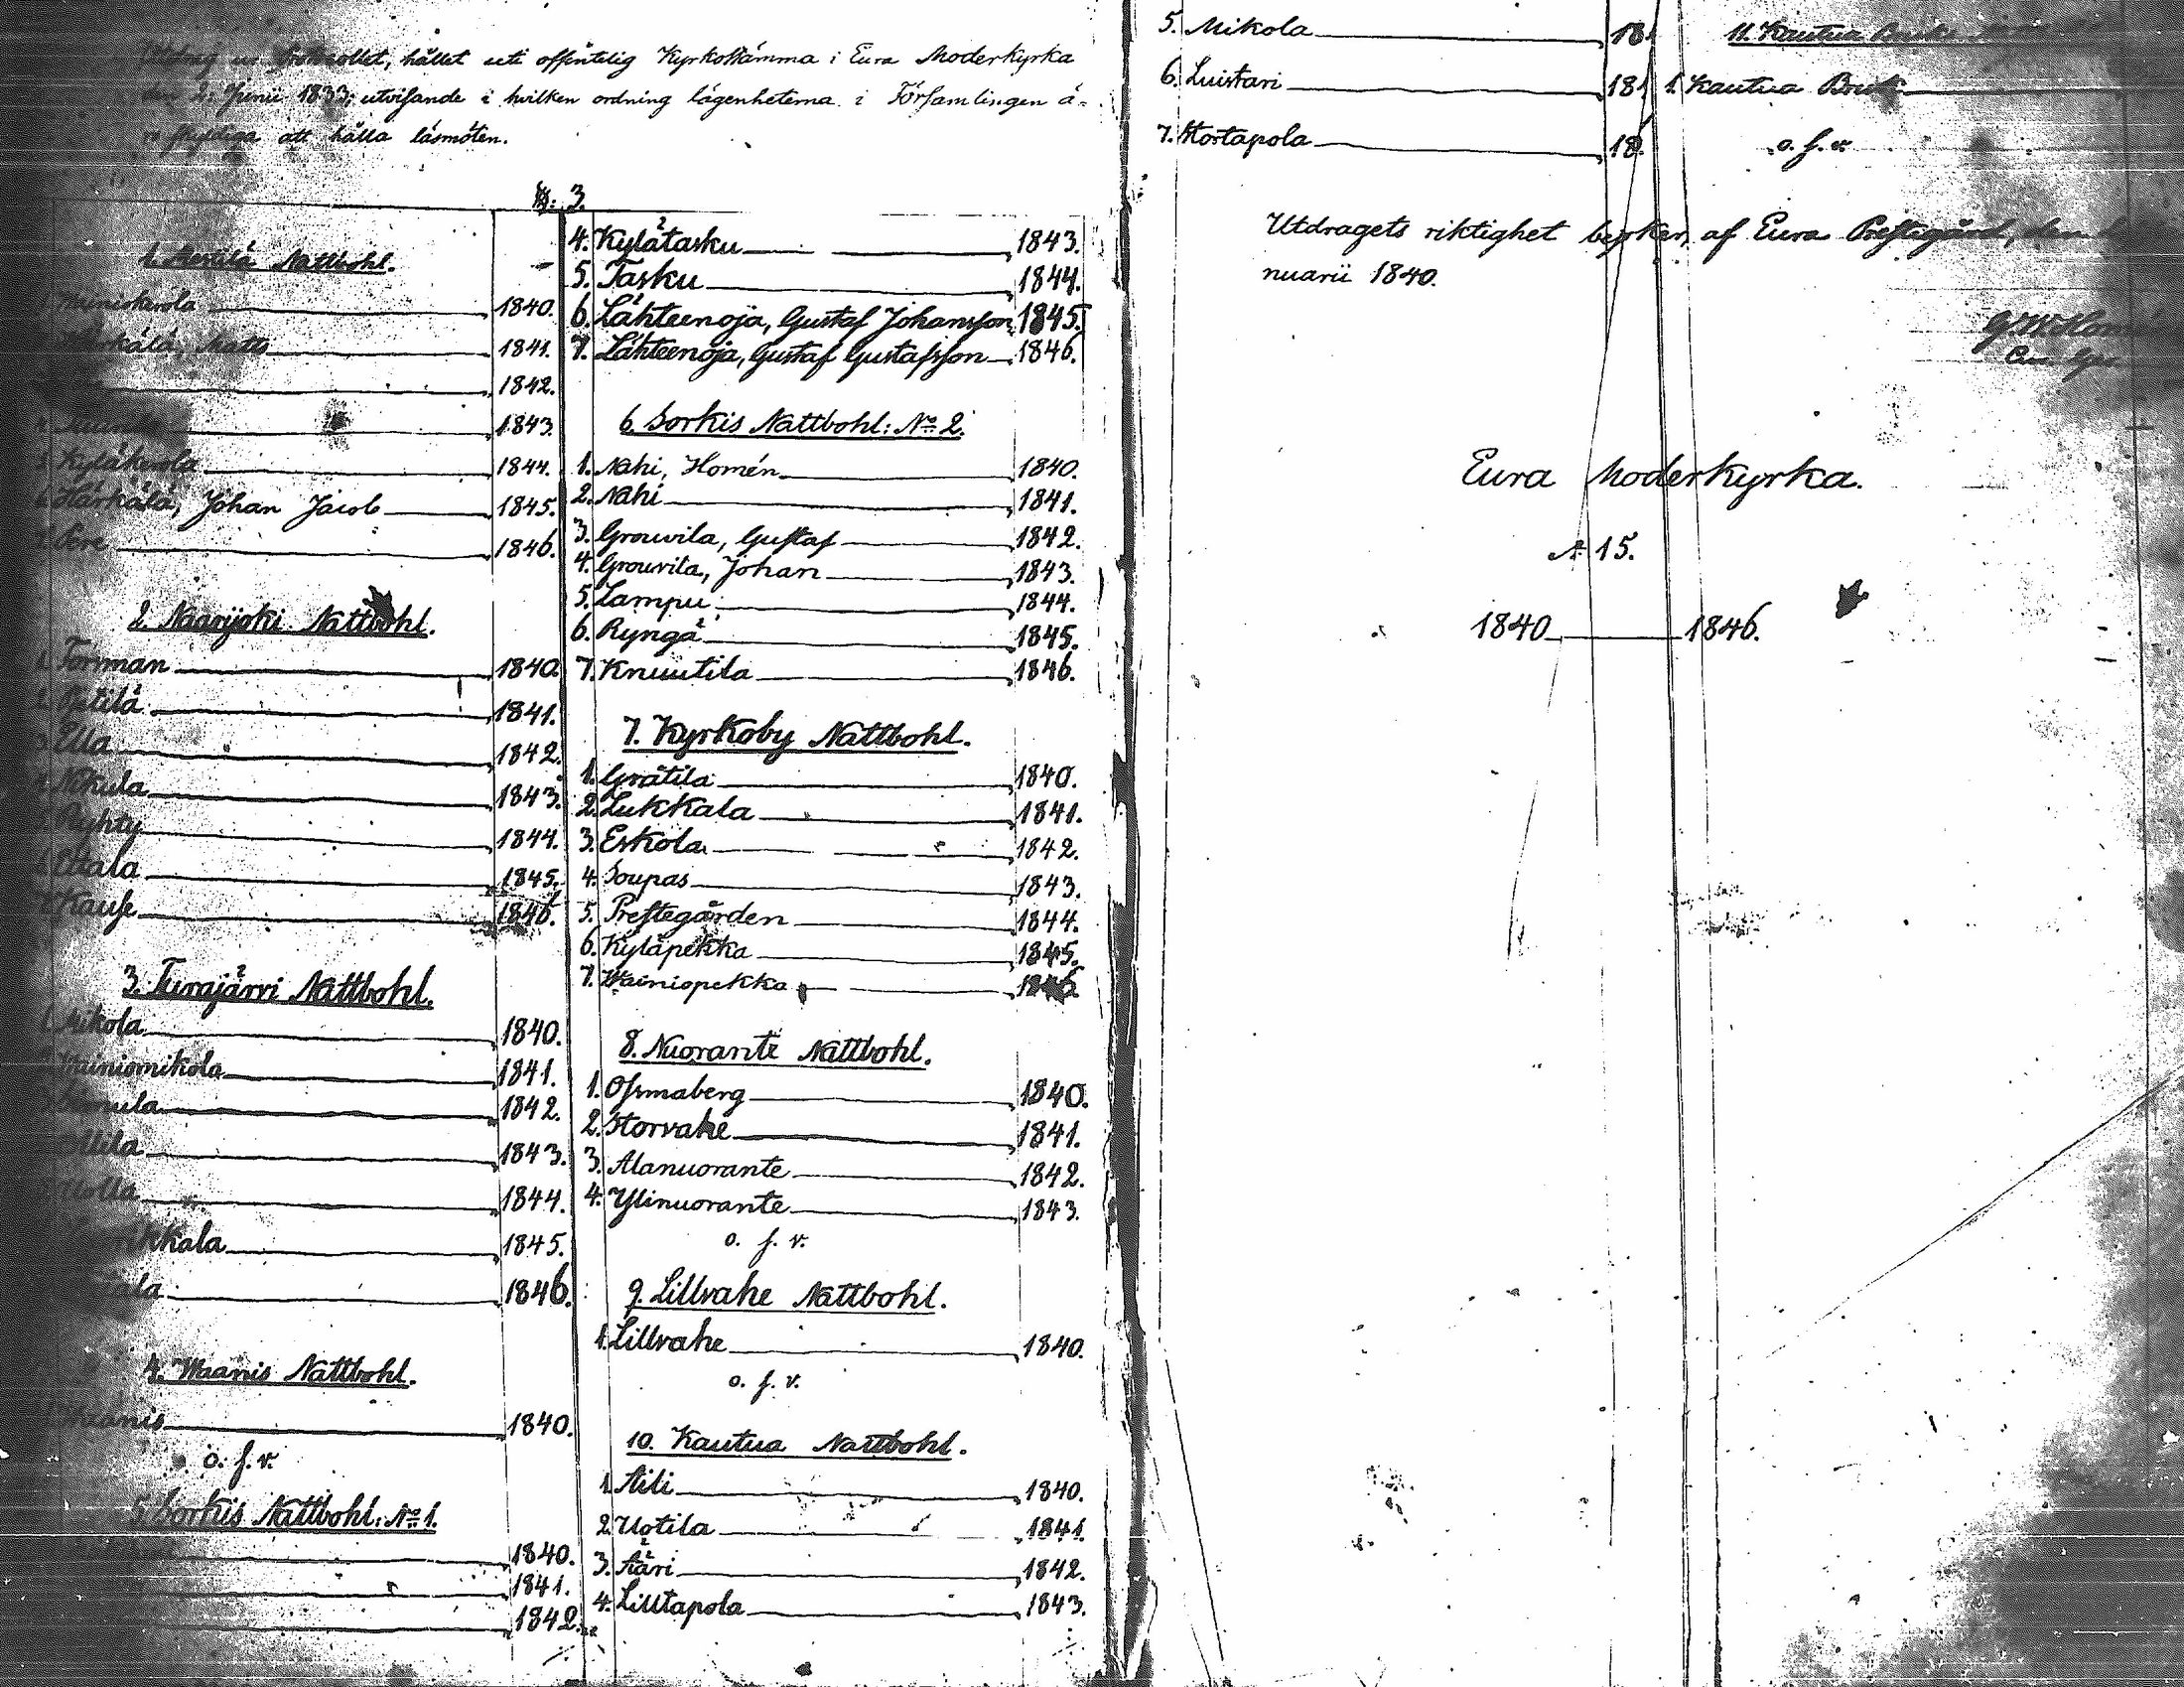 Utdrag ur Protocollet, hållet uti offentelig Kyrkostämma i Eura Moderkyrka
den 2. Junii 1833; utvisande i hvilken ordning lägenheterna i Församlingen ä-
ro skyldiga att hålla läsmöten.
§: 3.
1. Nattbohl.
1. Wäniökerola 1840.
2. Härkälä, Matts 1841.
1842.
4. 1843.
5. Kyläkerola 1844.
6. Härkälä, Johan Jacob 1845.
7. Pere 1846.
2. Naarijoki Nattbohl.
1. Tornman 1840.
2. Pstilä 1841.
3. Ella 1842.
4. Nikula 1843.
5. Ryhty 1844.
6. Ettala 1845.
7. Kause 1846.
3. Turajärvi Nattbohl.
1. Mikola 1840.
Wainiomikola 1841.
1842.
1843.
Uolla 1844.
1845.
1846.
4. Waanis Nattbohl.
Waanis 1840.
o. s. v.
5. Sorkis Nattbohl: No 1.
1840.
1841.
1842.
4. Kylätasku 1843.
5. Tasku 1844.
6. Lähteenoja, Gustaf Johansson 1845.
7. Lähteenoja, Gustaf Gustafsson 1846.
6. Sorkis Nattbohl: No 2.
1. Nahi, Homén 1840.
2. Nahi 1841.
3. Grouvila, Gustaf 1842.
4. Grouvila, Johan 1843.
5. Lampu 1844.
6. Ryngä 1845.
7. Knuutila 1846.
7. Kyrkoby Nattbohl.
1. Grätila 1840.
2. Lukkala 1841.
3. Eskola 1842.
4. Soupas 1843.
5. Prestegården 1844.
6. Kyläpekka 1845.
7. Wainiopekka 1846.
8. Nuorante Nattbohl.
1. Osmaberg 1840.
2. Storvahe 1841.
3. Alanuorante 1842.
4. Ylinuorante 1843.
o. s. v.
9. Lillvahe Nattbohl.
1. Lillvahe 1840.
o. s. v.
10. Kautua Nattbohl.
1. Aili 1840.
2. Uotila 1841.
3. Ääri 1842.
4. Lilltapola 1843.
5. Mikola 18
6. Luistari 18
7. Stortapola 18
11. Kautua Bruks
1. Kautua Bruk
o. s. v.
Utdragets riktighet betyder, af Eura Prestegård, den
nuarii 1840.
Eura Moderkyrka.
No 15.
1840 1846.